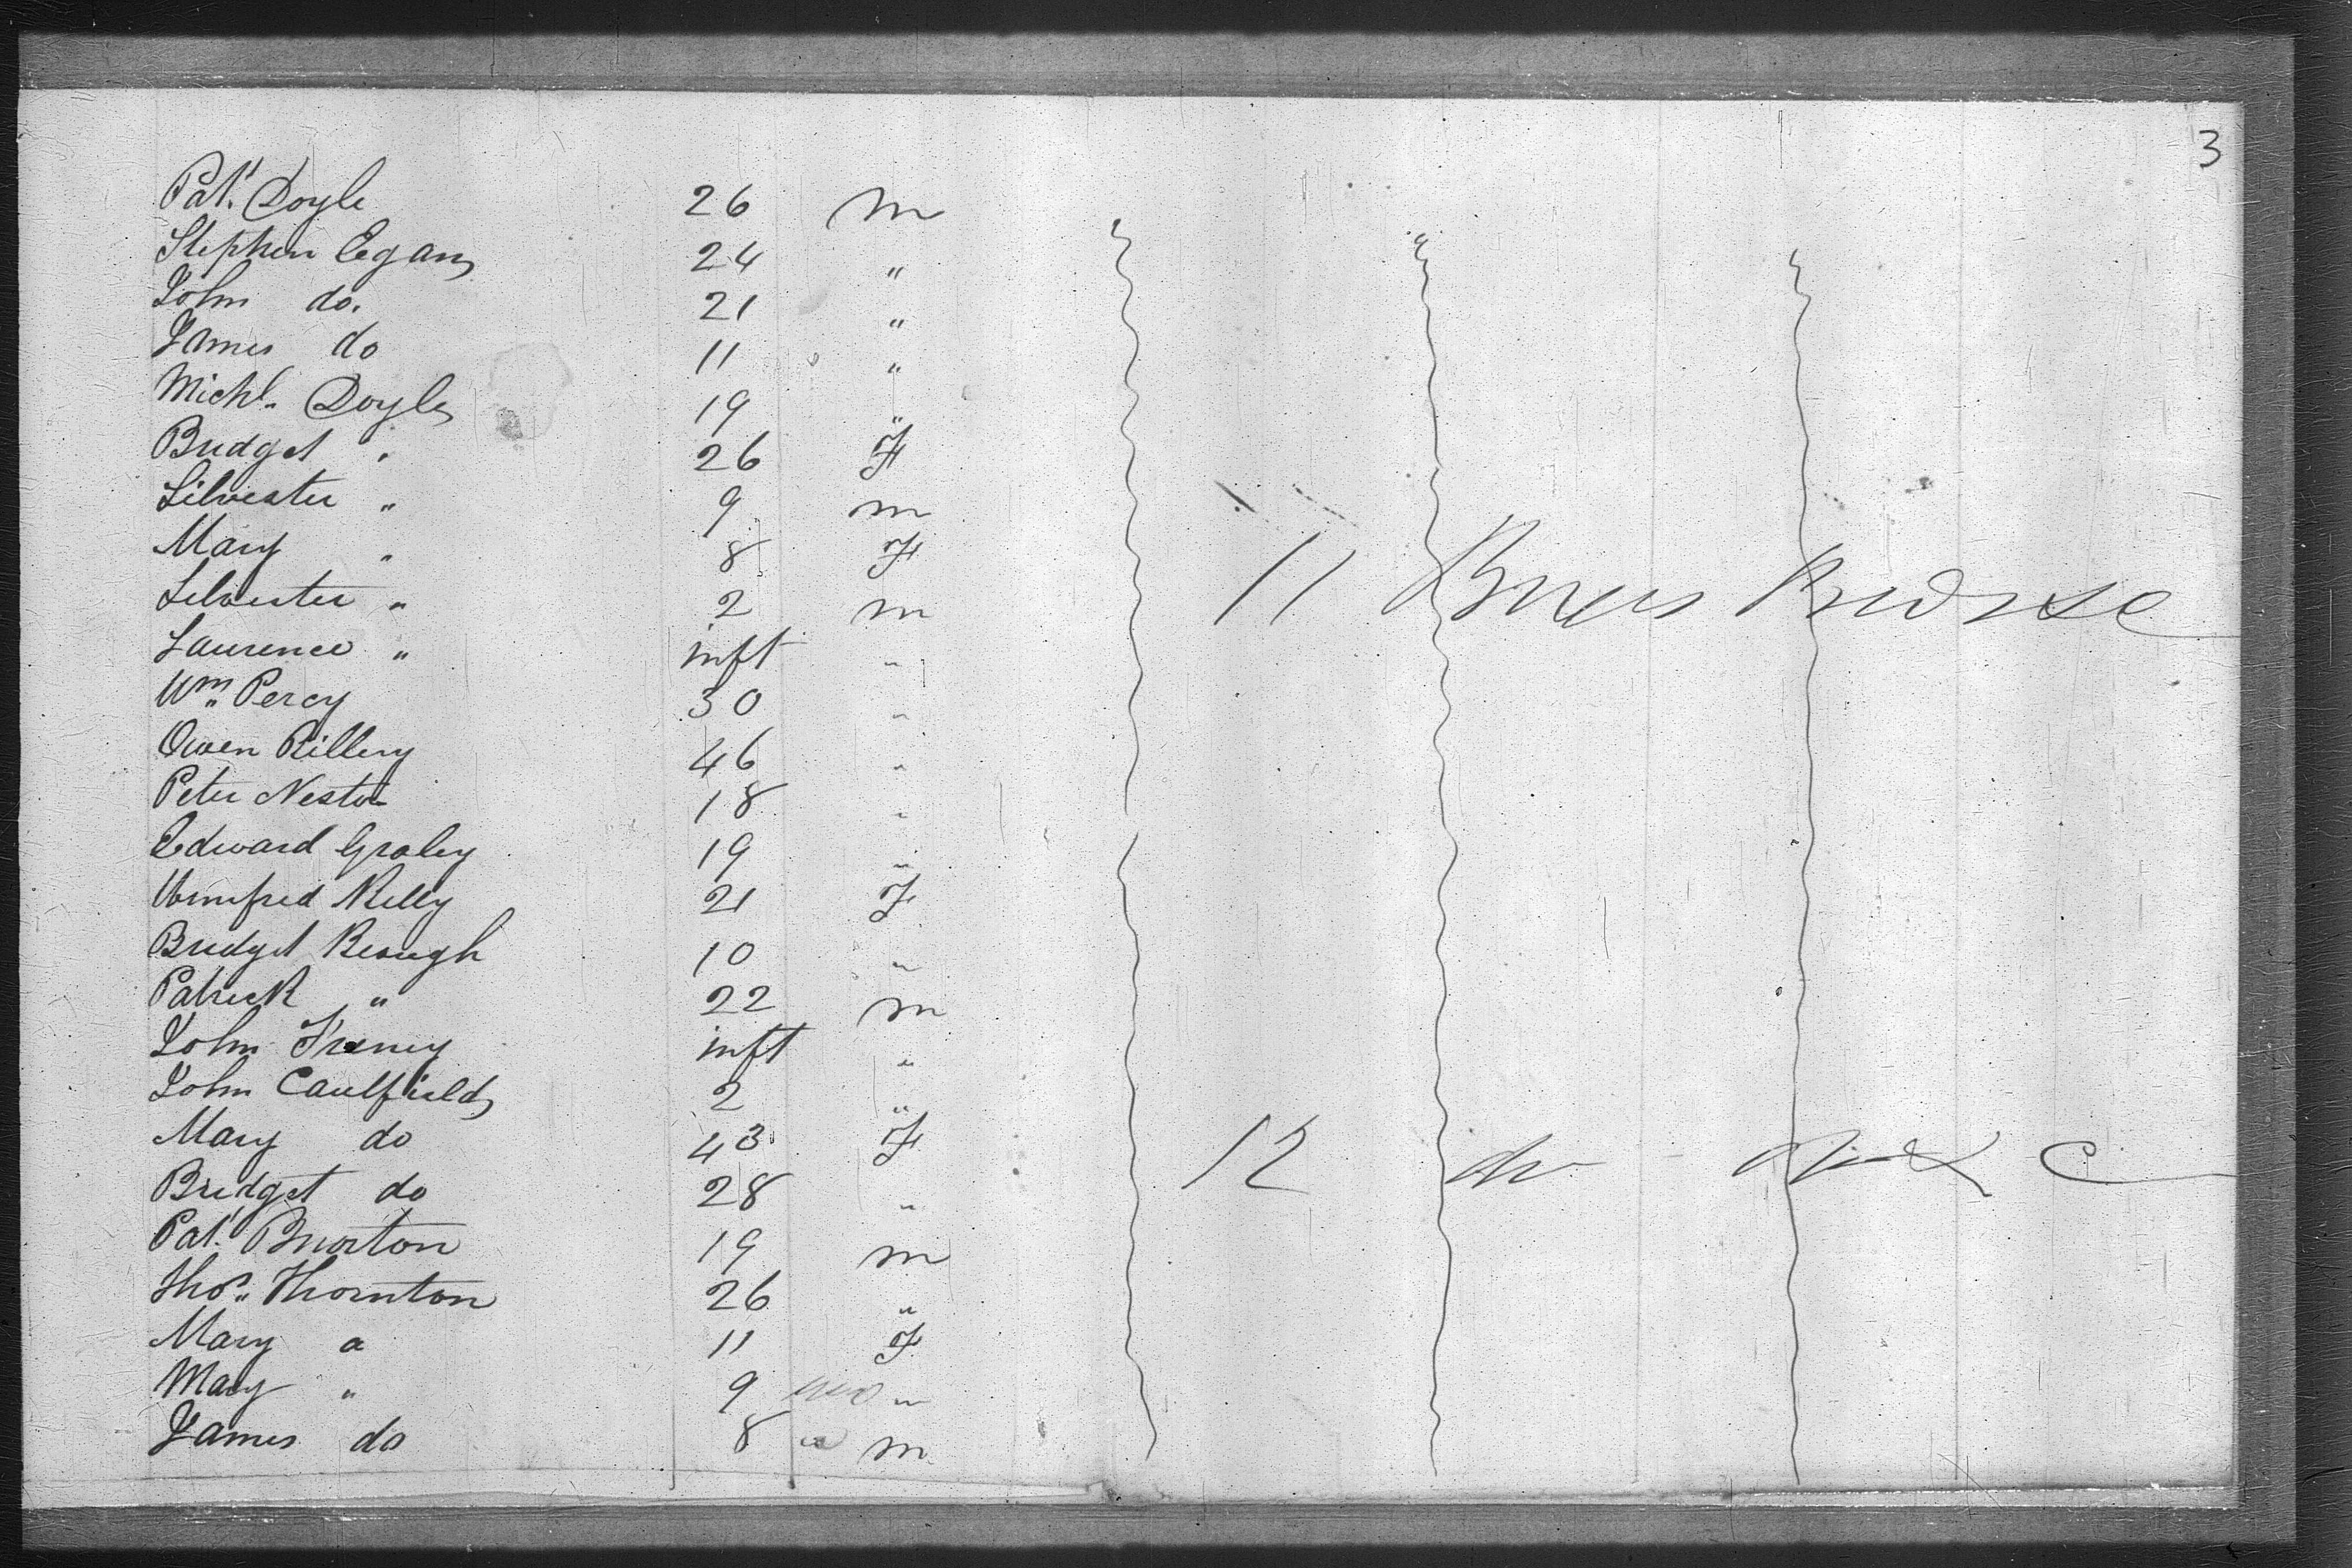 3
Pat. Doyle 26 m
Stephen Egan 24 "
John do. 21 "
James do 11 "
Michl. Doyle 19 "
Bridget " 26 F
Silvester " 9 m
Mary " 8 F
Silvester " 2 m
Laurence " inft "
Wm. Percy 30 "
Owen Killery 46 "
Peter Nestor 18 "
Edward Graley 19 "
Winnifred Kelly 21 F
Bridget Keough 10 "
Patrick " 22 m
John Freney inft "
John Caulfield 2 "
Mary do 43 F
Bridget do 28 "
Pat. 19 m
Thos. Thornton 26 "
Mary a 11 F
Mary " 9 mo "
James do 8 " m
11
12 do